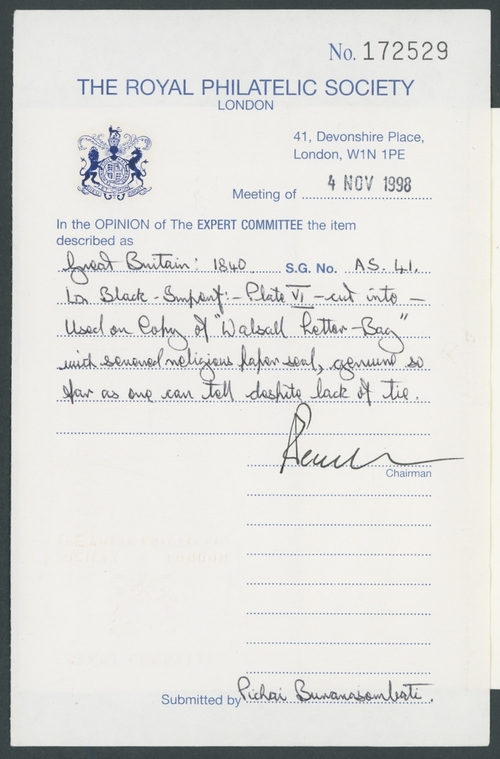 No. 172529
THE ROYAL PHILATELIC SOCIETY
LONDON
41, Devonshire Place,
London, W1N 1PE
Meeting of 4 NOV 1998
In the OPINION of The EXPERT COMMITTEE the item
described as
Great Britain: 1840 S.G. No. AS. 41.
1d Black - Imperf: - Plate VI - cut into -
Used on Copy of "Walsall Letter-Bag"
with several religious paper seal, genuine so
far as one can tell despite lack of tie.
Chairman
Submitted by Pichai Buranasombati.